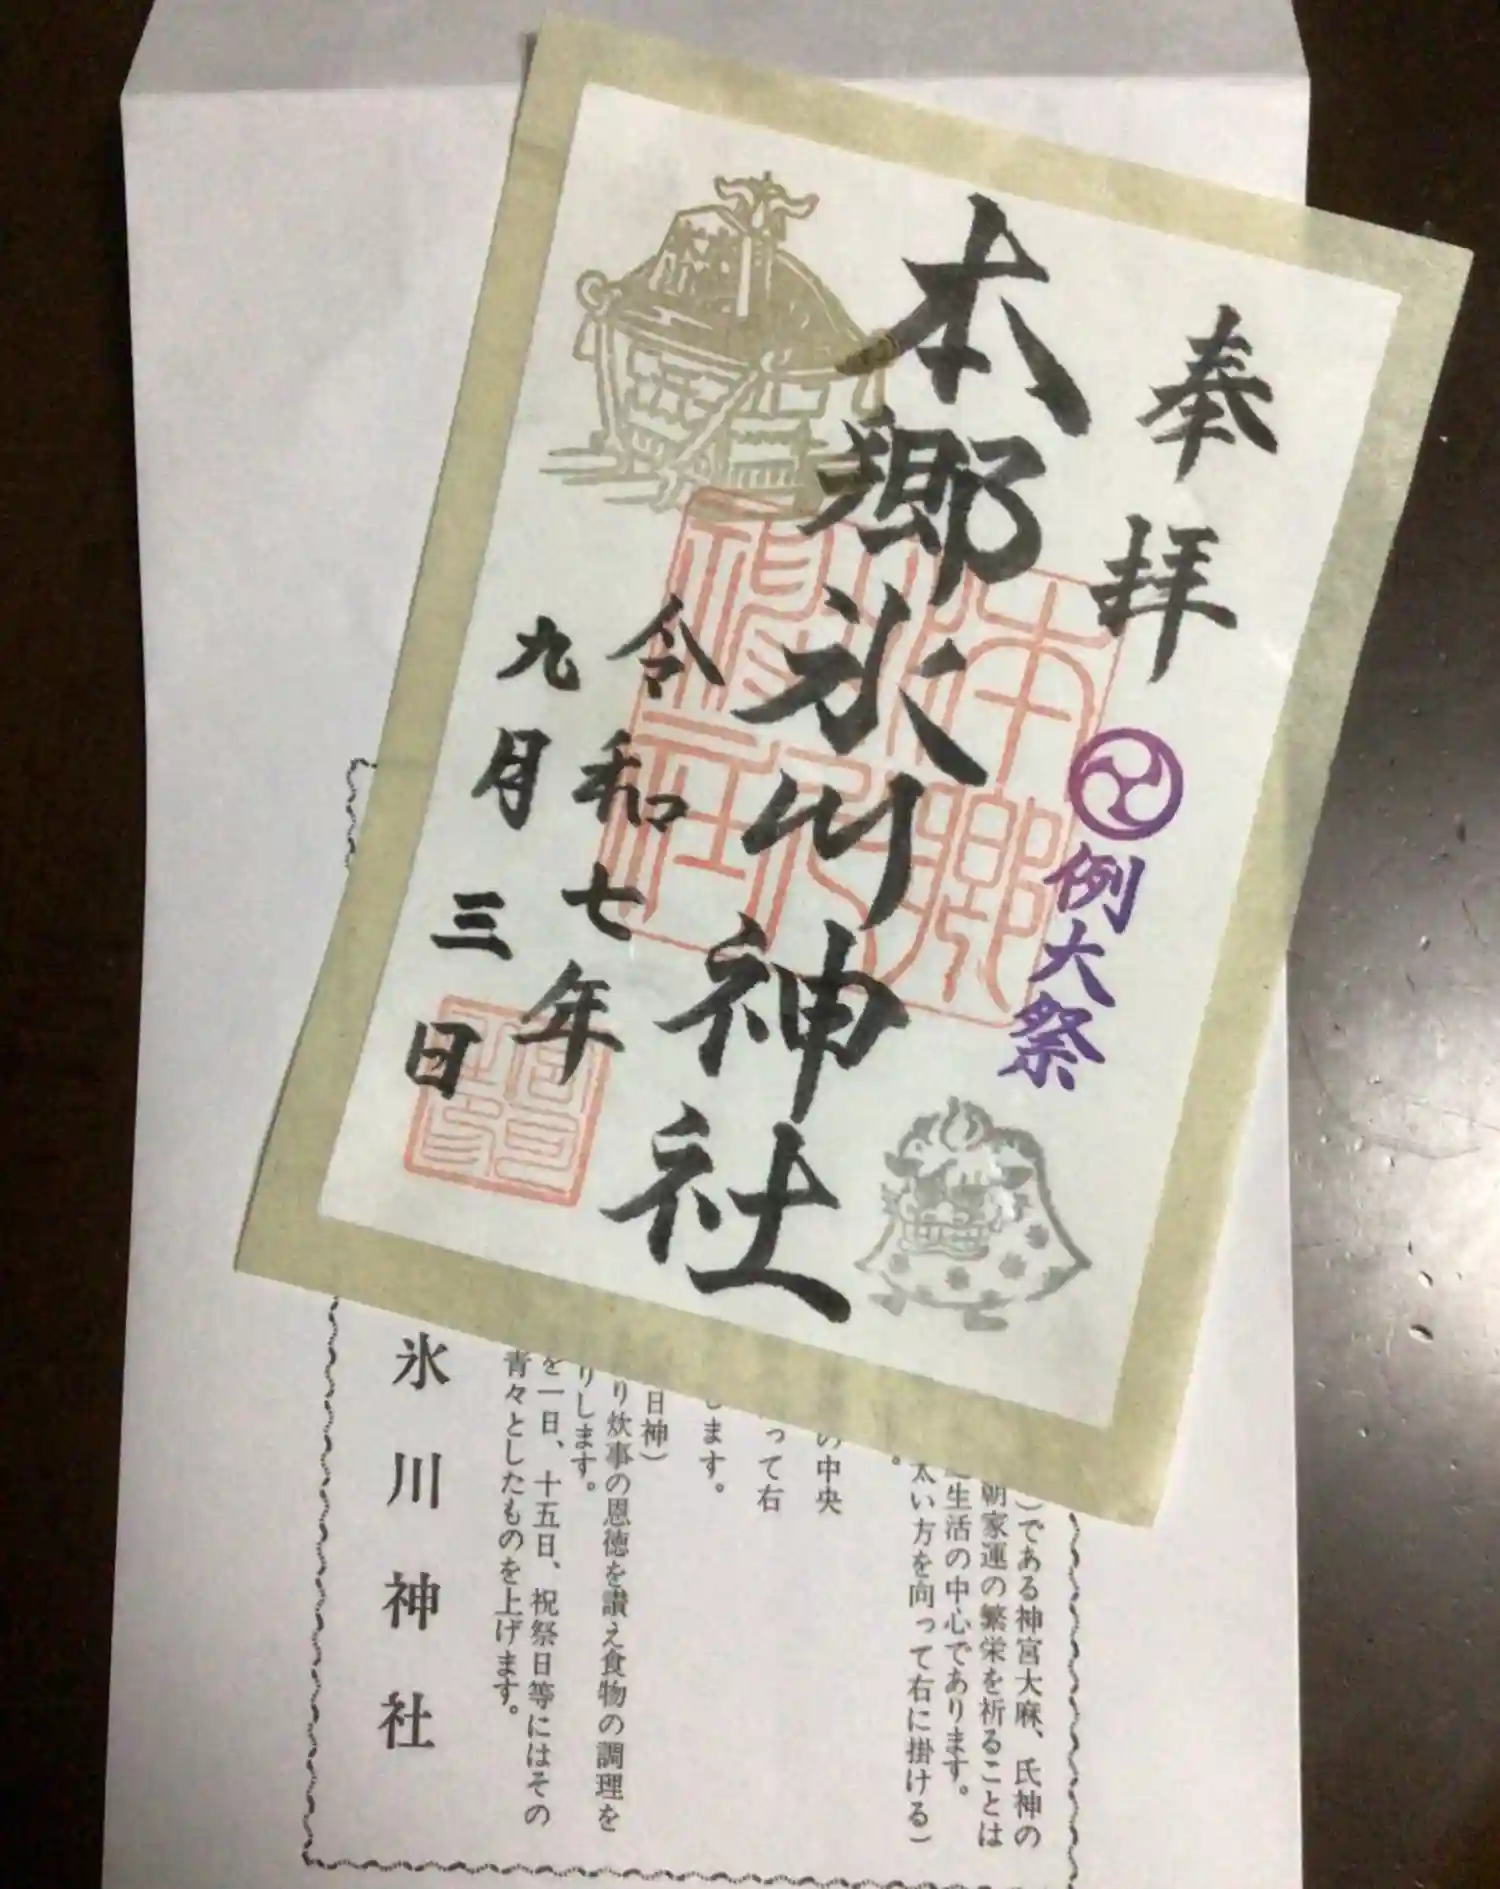 奉拝
例大祭
本郷氷川神社
令和七年
九月三日
本郷
氷川
神社
）である神宮大麻、氏神の
朝家運の繁栄を祈ることは
生活の中心であります。
太い方を向って右に掛ける）
。
の中央
って右
します。
日神）
り炊事の恩徳を讃え食物の調理を
りします。
を一日、十五日、祝祭日等にはその
青々としたものを上げます。
氷川神社